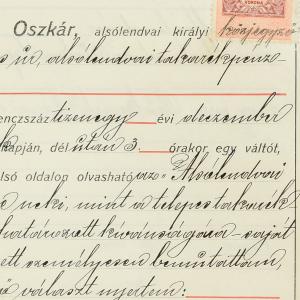 KORONA
Oszkár, alsólendvai királyi közjegyző
s úr, alsólendvai takarékpénz-
enczszáz tizenegy évi deczember
napján, dél után 3. órakor, egy váltót,
lsó oldalon olvasható az "Alsólendvai
e neki, mint a telepes takarék
határozott kivánságára saját
ett személyesen bemutattam,
a választ nyertem: